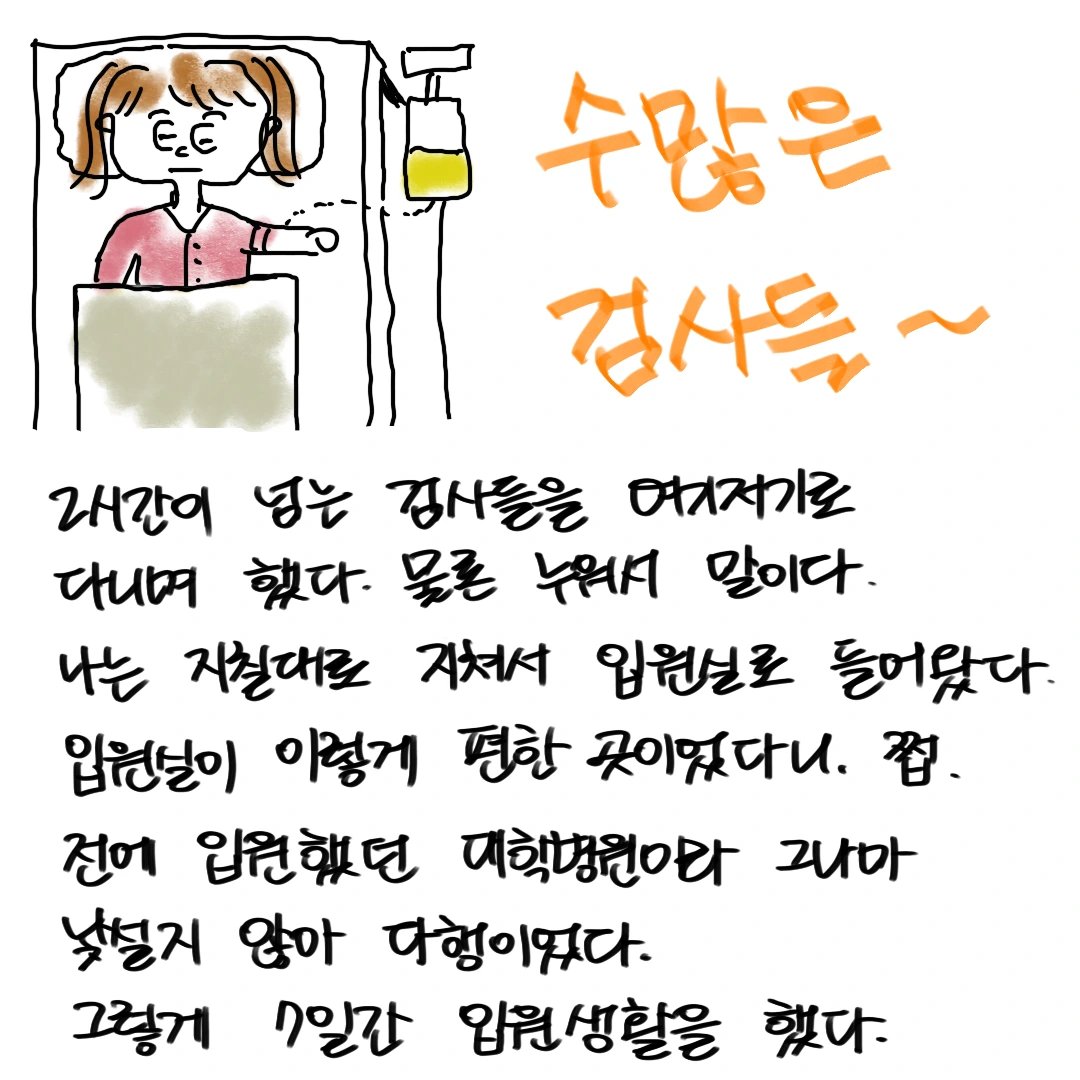 수많은
검사들~
2시간이 넘는 검사들을 여기저기로
다니며 했다. 물론 누워서 말이다.
나는 지칠대로 지쳐서 입원실로 들어왔다.
입원실이 이렇게 편한 곳이었다니. 쩝.
전에 입원했던 대학병원이라 그나마
낯설지 않아 다행이었다.
그렇게 7일간 입원생활을 했다.